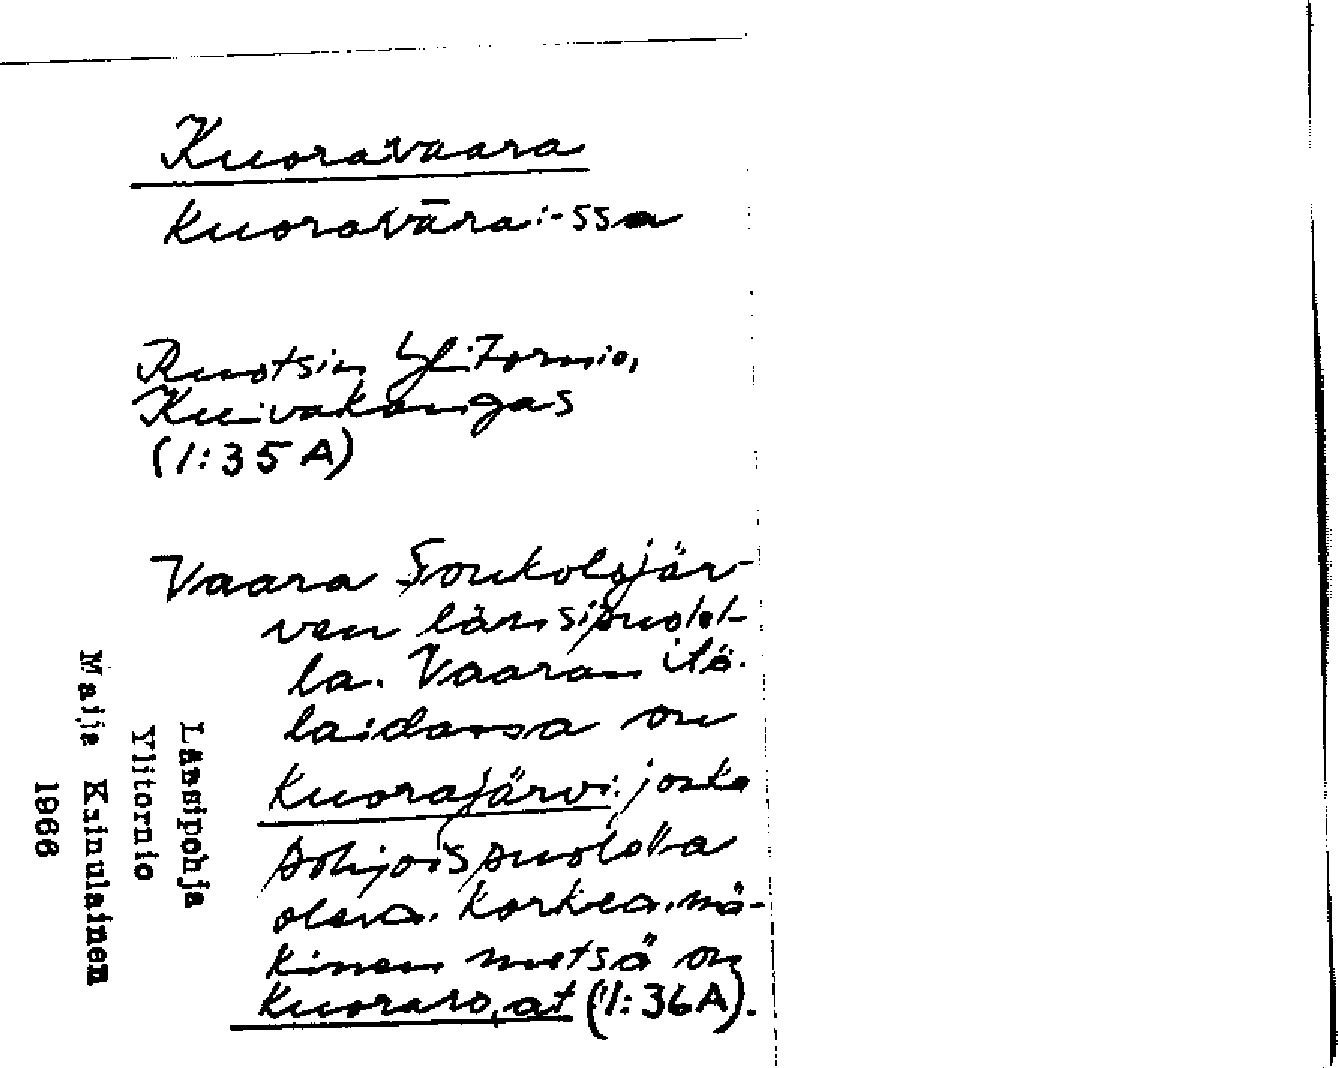 Kuoravaara
kuoravāra: -ssa
Ruotsin Ylitornio,
Kuivakangas
(1:35 A)
Vaara Soukolojär-
ven länsipuolel-
la. Vaaran itä-
laidassa on
Kuorajärvi, jonka
pohjoispuolella
oleva, korkea, mä-
kinen metsä on
(1:36A).
Länsipohja
Ylitornio
Maija Kainulainen
1966